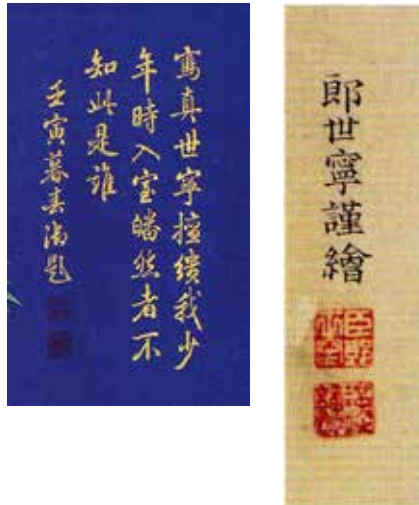 寫真世寧擅繢我少
年時入室皤然者不
知此是誰
壬寅暮春御題
郎世寧謹繪